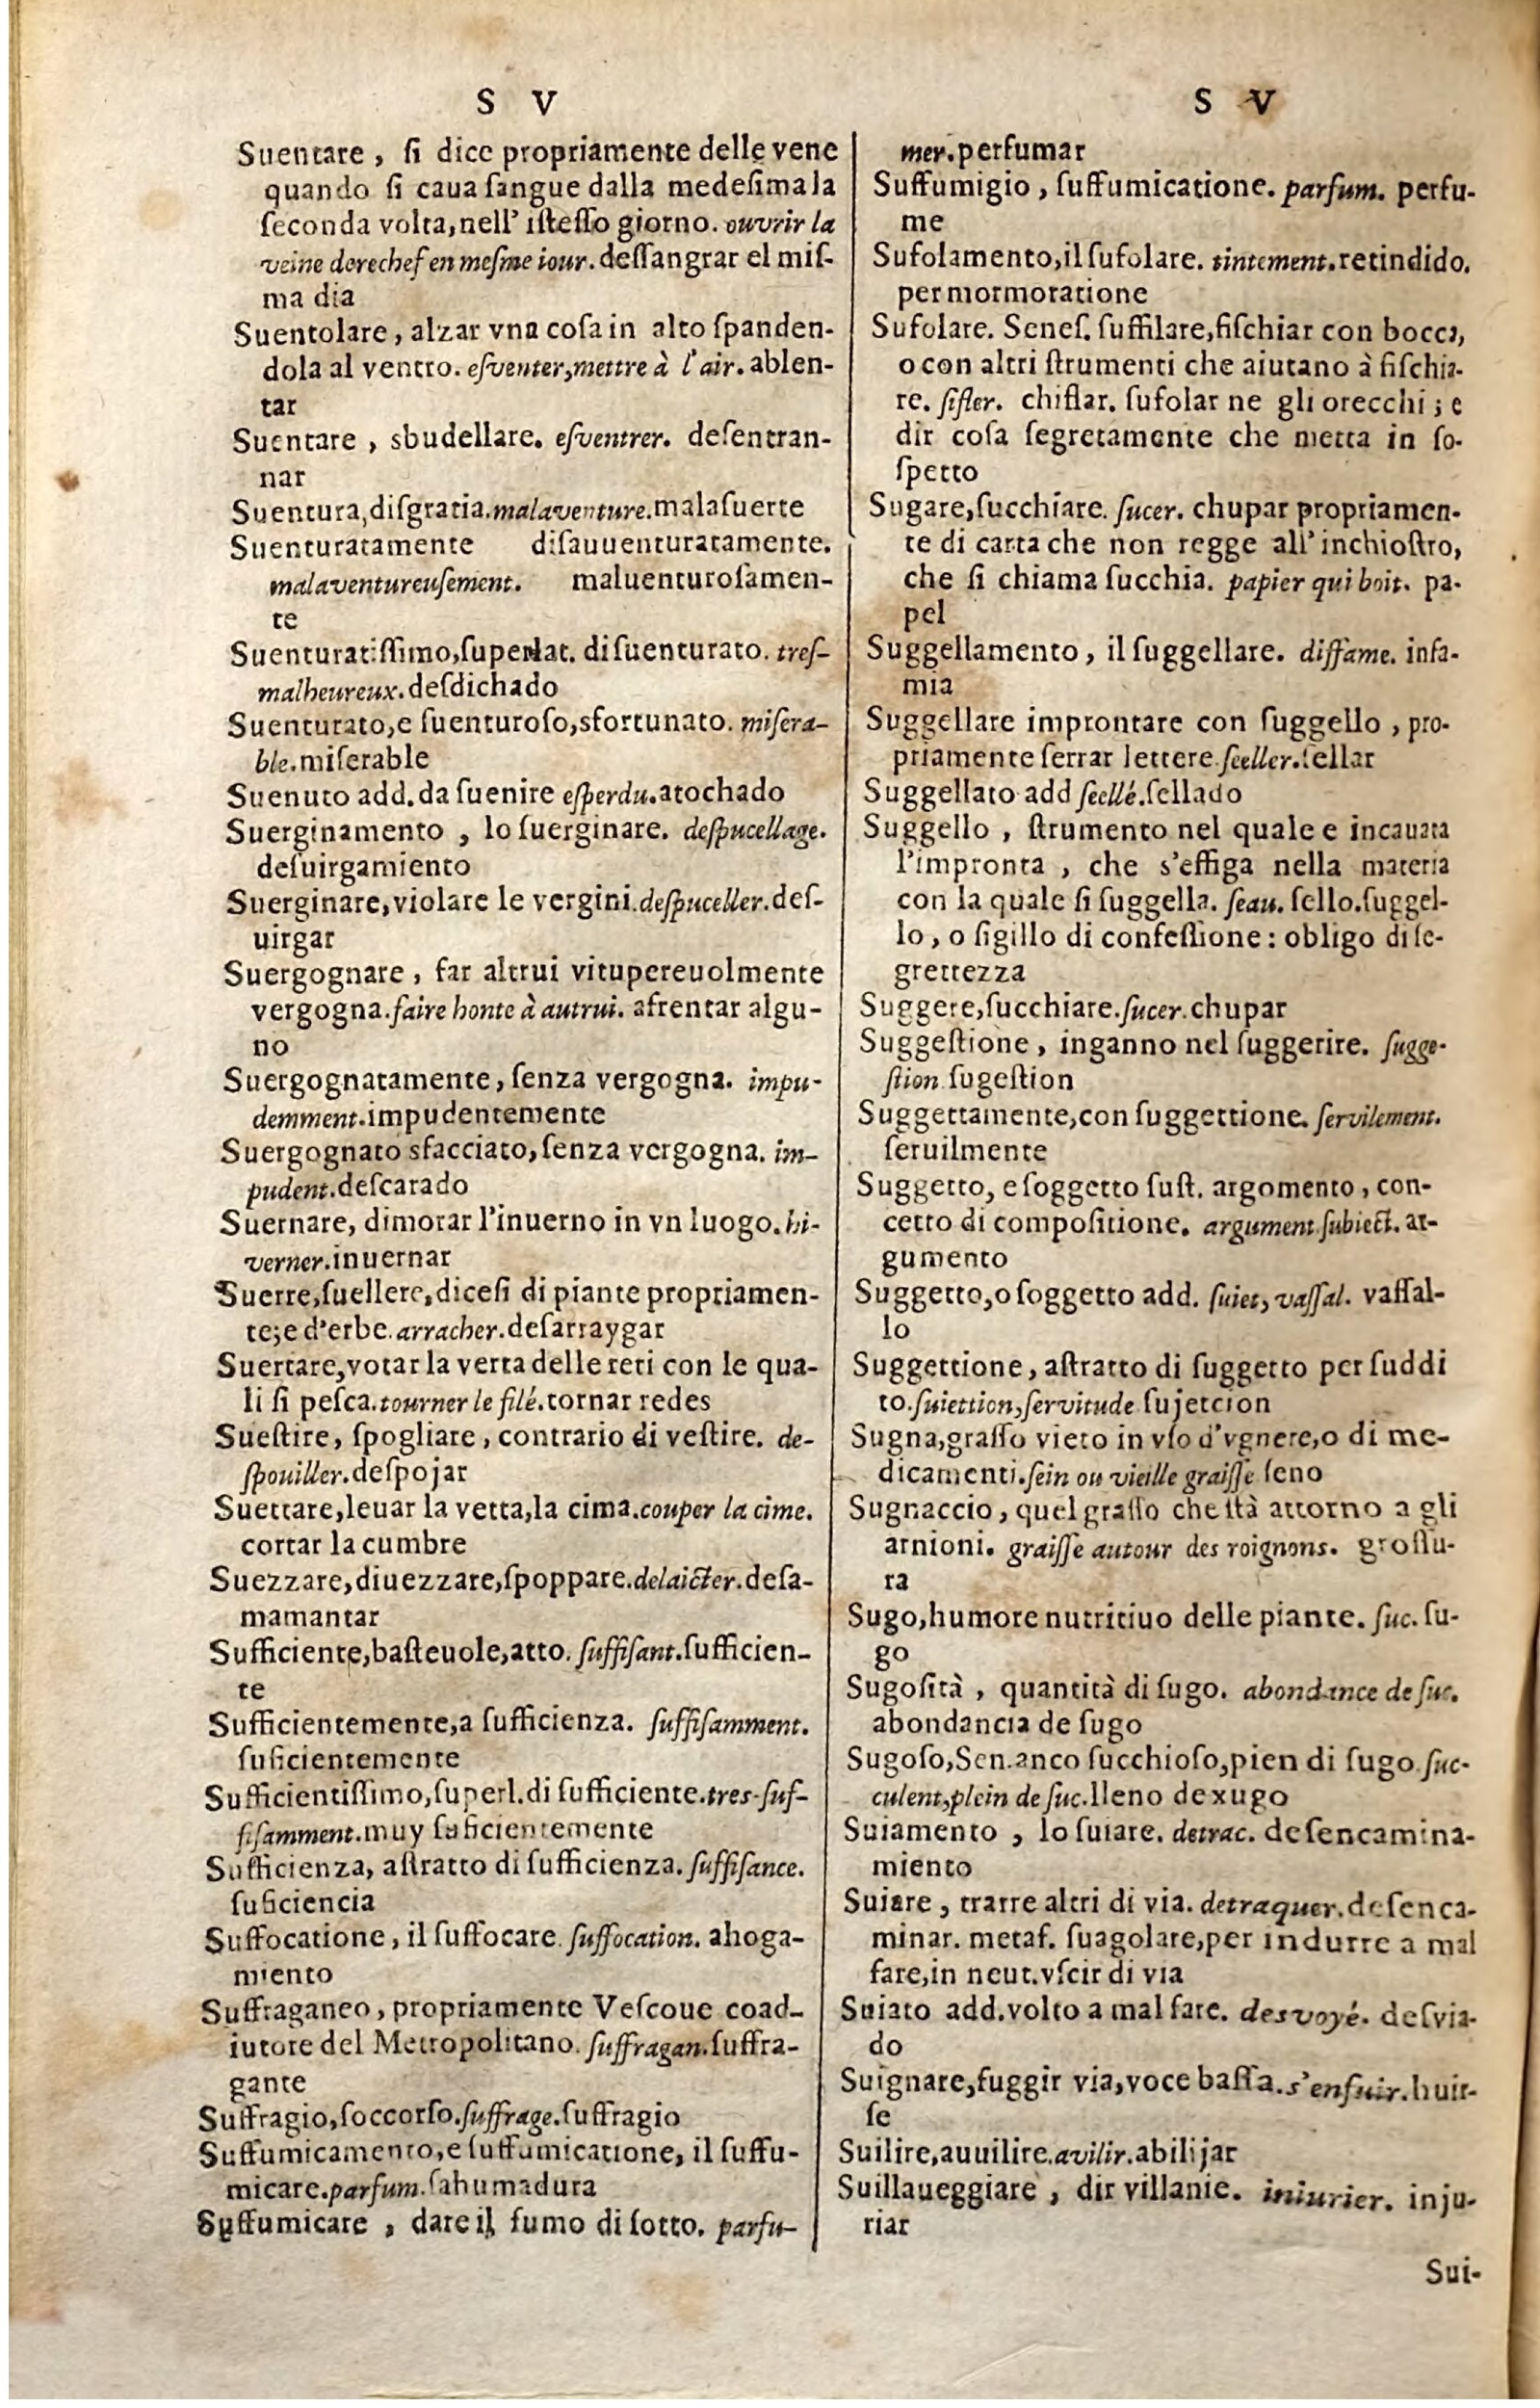 S V
Suentare, ſi dice propriamente delle vene
quando ſi caua ſangue dalla medeſima la
ſeconda volta, nell' iſteſſo giorno. ouvrir la
veine derechef en meſme iour. deſſangrar el miſ-
ma dia
Suentolare, alzar vna coſa in alto ſpanden-
dola al ventto. eſventer, mettre à l'air. ablen-
tar
Suentare, sbudellare. eſventrer. deſentran-
nar
Suentura, diſgratia. malaventure. mala ſuerte
Suenturatamente diſauuenturatamente.
malaventureuſement. maluenturoſamen-
te
Suenturatiſſimo, ſuperlat. di ſuenturato. treſ-
malheureux. deſdichado
Suenturato, e ſuenturoſo, sfortunato. miſera-
ble. miſerable
Suenuto add. da ſuenire eſperdu. atochado
Suerginamento, lo ſuerginare. deſpucellage.
deſuirgamiento
Suerginare, violare le vergini. deſpuceller. deſ-
uirgar
Suergognare, far altrui vitupereuolmente
vergogna. faire honte à autrui. afrentar algu-
no
Suergognatamente, ſenza vergogna. impu-
demment. impudentemente
Suergognato sfacciato, ſenza vergogna. im-
pudent. deſcarado
Suernare, dimorar l'inuerno in vn luogo. hi-
verner. inuernar
Suerre, ſuellere, diceſi di piante propriamen-
te; e d'erbe. arracher. deſarraygar
Suertare, votar la verta delle reti con le qua-
li ſi peſca. tourner le filé. tornar redes
Sueſtire, ſpogliare, contrario di veſtire. de-
ſpouiller. deſpojar
Suettare, leuar la vetta, la cima. couper la cime.
cortar la cumbre
Suezzare, diuezzare, ſpoppare. delaicter. deſa-
mamantar
Sufficiente, baſteuole, atto. ſuffiſant. ſufficien-
te
Sufficientemente, a ſufficienza. ſuffiſamment.
ſuficientemente
Sufficientiſſimo, ſuperl. di ſufficiente. tres-ſuf-
fiſamment. muy ſuficientemente
Sufficienza, aſtratto di ſufficienza. ſuffiſance.
ſuficiencia
Suffocatione, il ſuffocare. ſuffocation. ahoga-
miento
Suffraganeo, propriamente Veſcoue coad-
iutore del Metropolitano. ſuffragan. ſuffra-
gante
Suffragio, ſoccorſo. ſuffrage. ſuffragio
Suffumicamento, e ſuffumicatione, il ſuffu-
micare. parfum. ſahumadura
Suffumicare, dare il fumo di ſotto. parfu-
S V
mer. perfumar
Suffumigio, ſuffumicatione. parfum. perfu-
me
Sufolamento, il ſufolare. tintement. retindido.
per mormoratione
Sufolare. Seneſ. ſuffilare, fiſchiar con bocca,
o con altri ſtrumenti che aiutano à fiſchia-
re. ſifler. chiflar. ſufolar ne gli orecchi; e
dir coſa ſegretamente che metta in ſo-
ſpetto
Sugare, ſucchiare. ſucer. chupar propriamen-
te di carta che non regge all' inchioſtro,
che ſi chiama ſucchia. papier qui boit. pa-
pel
Suggellamento, il ſuggellare. diffame. infa-
mia
Suggellare improntare con ſuggello, pro-
priamente ſerrar lettere. ſeeller. ſellar
Suggellato add ſeellé. ſellado
Suggello, ſtrumento nel quale e incauata
l'impronta, che s'effiga nella materia
con la quale ſi ſuggella. ſeau. ſello. ſuggel-
lo, o ſigillo di confeſſione: obligo di ſe-
grettezza
Suggere, ſucchiare. ſucer. chupar
Suggeſtione, inganno nel ſuggerire. ſugge-
ſtion ſugeſtion
Suggettamente, con ſuggettione. ſervilement.
ſeruilmente
Suggetto, e ſoggetto ſuſt. argomento, con-
cetto di compoſitione. argument ſubiect. ar-
gumento
Suggetto, o ſoggetto add. ſuiet, vaſſal. vaſſal-
lo
Suggettione, aſtratto di ſuggetto per ſuddi
to. ſuiettion, ſervitude ſujetcion
Sugna, graſſo vieto in vſo d'vgnere, o di me-
dicamenti. ſein ou vieille graiſſe ſeno
Sugnaccio, quel graſſo che ſtà attorno a gli
arnioni. graiſſe autour des roignons. groſſu-
ra
Sugo, humore nutritiuo delle piante. ſuc. ſu-
go
Sugoſità, quantità di ſugo. abondance de ſuc.
abondancia de ſugo
Sugoſo, Sen. anco ſucchioſo, pien di ſugo. ſuc-
culent, plein de ſuc. lleno de xugo
Suiamento, lo ſuiare. detrac. deſencamina-
miento
Suiare, trarre altri di via. detraquer. deſenca-
minar. metaf. ſuagolare, per indurre a mal
fare, in neut. vſcir di via
Suiato add. volto a mal fare. desvoyé. deſvia-
do
Suignare, fuggir via, voce baſſa. s'enfuir. huir-
ſe
Suilire, auuilire. avilir. abilijar
Suillaueggiare, dir villanie. iniurier. inju-
riar
Sui-